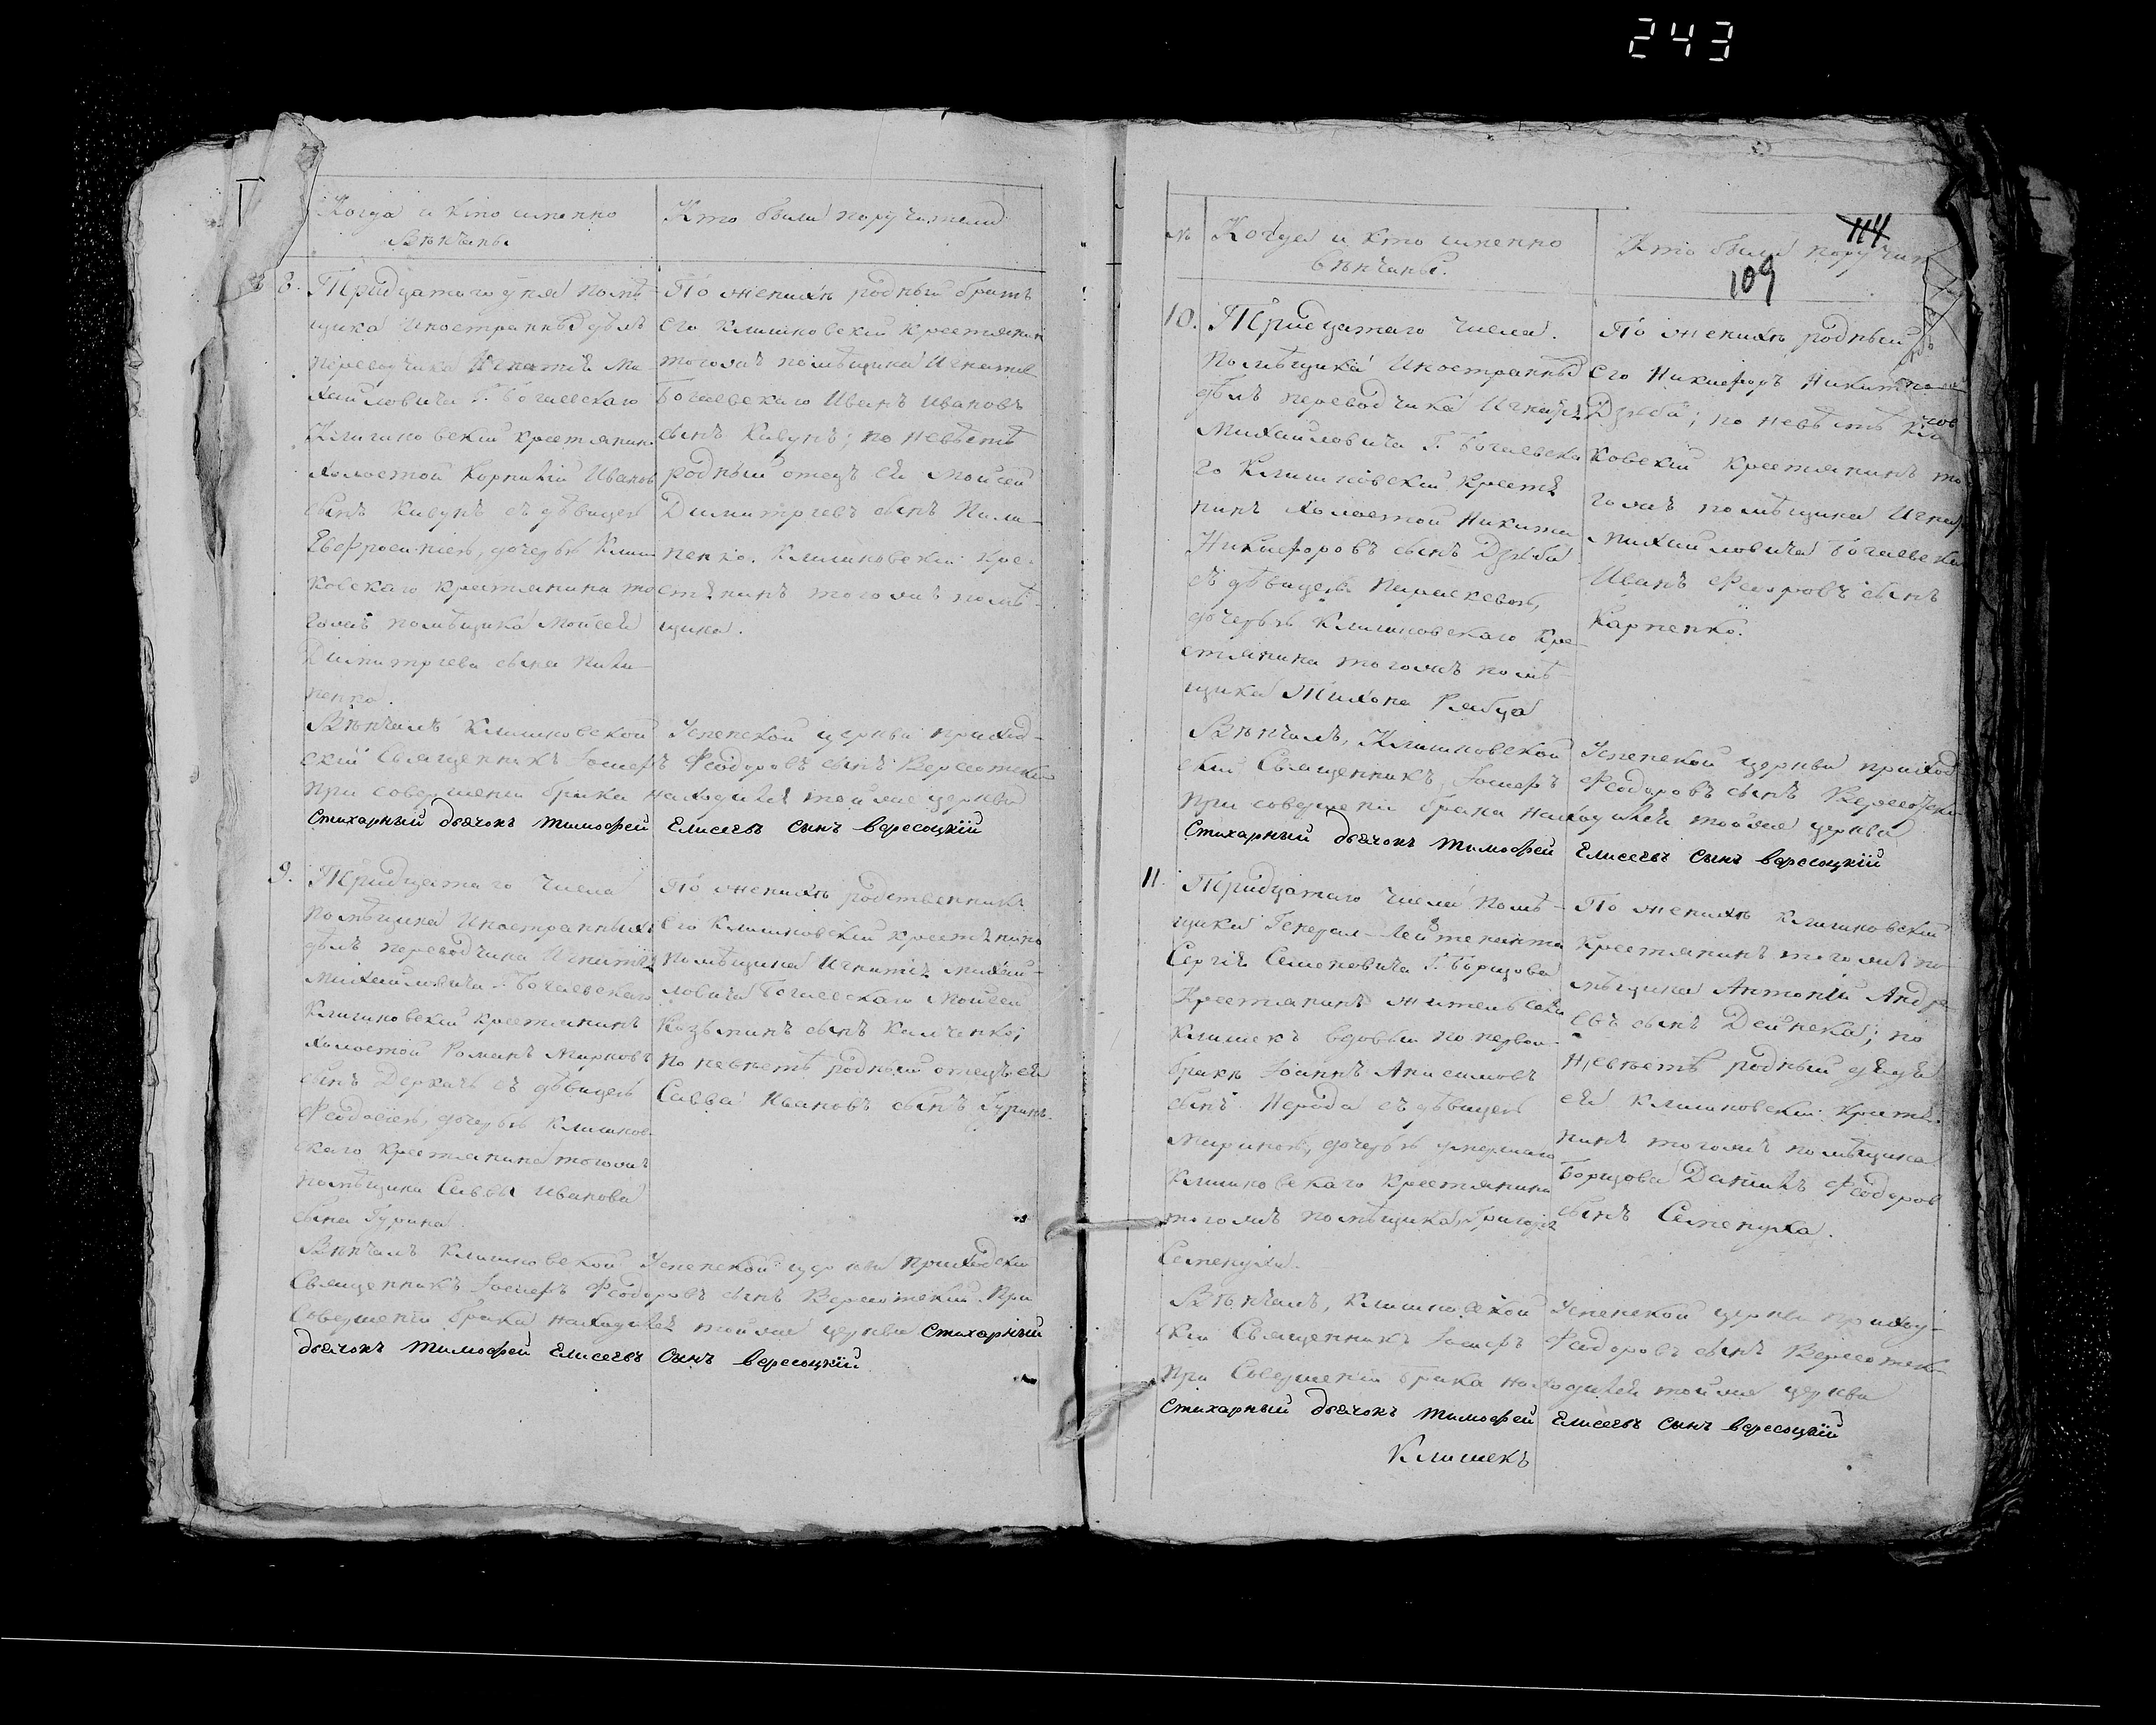 243
Когда и кто именно
вѣнчаны
Кто были поручители
8. Тридцатого дня помѣ-
щика Иностранныхъ дѣлъ
переводчика Игнатія Ми
хайловича Г. Богаевскаго
Клишковскій крестянинъ
холостой Корнилій Ивановъ
сынъ Кавунъ съ дѣвицею
Евфросиніею, дочерью Клиш
ковскаго крестянина то
гожъ помѣщика Мойсея
Димитріева сына Пили-
пенка.
По женихѣ родный братъ
его Клишковскій крестянинъ
тогожъ помѣщика Игнатія
Богаевскаго Иванъ Ивановъ
сынъ Кавунъ; по невѣстѣ
родный отецъ ея Мойсей
Димитріевъ сынъ Пили-
пенко. Клишковскій кре-
стянинъ тогожъ помѣ-
щика.
Вѣнчалъ Клишковской Успенской церкви приход-
скій Священникъ Іосифъ Феодоровъ сынъ Вересотскій
При совершеніи брака находился тойже церкви
Стихарный дьячокъ тимофей Елисеевъ сынъ вересоцкій
9. Тридцатаго числа
помѣщика Иностранныхъ
дѣлъ переводчика Игнатія
Михайловича Г. Богаевскаго
Клишковскій крестянинъ
холостой Романъ Марковъ
сынъ Деркачъ съ дѣвицею
Феодосіею, дочерью Клишков-
скаго крестянина тогожъ
помѣщика Саввы Иванова
сына Гурина.
По женихѣ родственникъ
его Клишковскій крестянинъ
помѣщика Игнатія Михай-
ловича Богаевскаго Мойсей
Козьминъ сынъ Калченко;
по невѣстѣ родный отецъ ея
Савва Ивановъ сынъ Гуринъ.
Вѣнчалъ Клишковской Успенской церкви приходскій
Священникъ Іосифъ Феодоровъ сынъ Вересотскій. При
совершеніи брака находился тойже церкви Стихарный
дьячокъ тимофей Елисеевъ Сынъ вересоцкій
114
109
№ Когда и кто именно
вѣнчаны.
Кто были поручит
10. Тридцатаго числа.
помѣщика Иностранныхъ
дѣлъ переводчика Игнатія
Михайловича Г. Богаевска
го Клишковскій крестя
нинъ холостой Никита
Никифоровъ сынъ Дзюба
съ дѣвицею Параскевою,
дочерью Клишковскаго кре-
стянина тогожъ помѣ-
щика Тихона Рябца
По женихѣ родный
его Никифоръ Никит
Дзюба; по невѣстѣ Кли
ковскій крестянинъ то
гожъ помѣщика Игнат
Михайловича Богаевска
Иванъ Феодоровъ сынъ
Карпенко.
Вѣнчалъ, Клишковской Успенской церкви приход
скій Священникъ, Іосифъ Феодоровъ сынъ Вересотскій
При совершеніи брака находился тойже церкви
Стихарный дьячокъ тимофей Елисеевъ Сынъ вересоцкій
11. Тридцатаго числа помѣ-
щика Генерал-Лейтенанта
Сергія Семеновича Г. Борщова
крестянинъ житель села
Клишекъ вдовый по первом
бракѣ Іоаннъ Анисимовъ
сынъ Нерода съ дѣвицею
Мариною, дочерью умершаго
Клишковскаго крестянина
тогожъ помѣщика, Григорія
Семенухи.
По женихѣ Клишковскій
крестянинъ тогожъ по-
мѣщика Антоній Андре
евъ сынъ Дейнека; по
невѣстѣ родный дядя
ея Клишковскій крестя-
нинъ тогожъ помѣщика
Борщова Даніилъ Феодоров
сынъ Семенуха.
Вѣнчалъ, Клишковской Успенской церкви приход-
скій Священникъ Іосифъ Феодоровъ сынъ Вересотск
При Совершеніи брака находился тойже церкви
Стихарный дьячокъ тимофей Елисеевъ Сынъ вересоцкій
Клишекъ